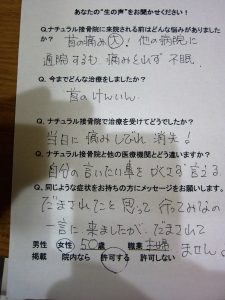 あなたの"生の声"をお聞かせください!
Q.ナチュラル接骨院に来院される前はどんな悩みがありましたか?
首の痛み 大! 他の病院に
通院するも、痛みとれず 不眠。
Q. 今までどんな治療をしましたか?
首のけんいん。
Q.ナチュラル接骨院で治療を受けてどうでしたか?
当日に 痛みしびれ 消失!
Q.ナチュラル接骨院と他の医療機関とどう違いますか?
自分の言いたい事を よくきき 言える。
Q.同じような症状をお持ちの方にメッセージをお願いします。
だまされてこと 思って 行ってみなの
一言に来ましたが、だまされて
男性 女性 50歳 職業 主婦 ません。
掲載 院内なら 許可する 許可しない